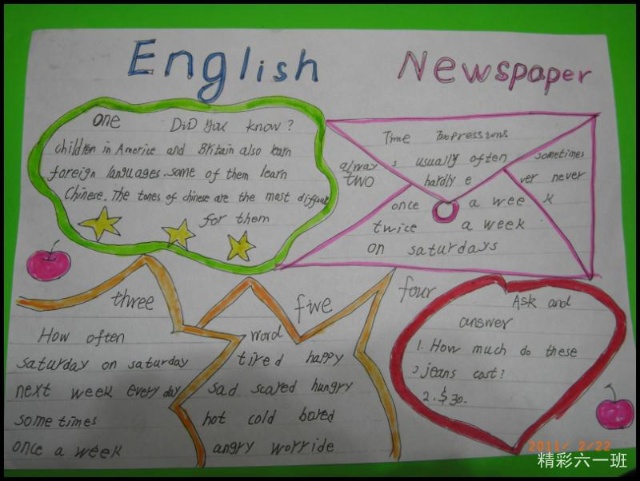 English Newspaper
one DiD You know?
children in America and Britain also learn
foreign languages. some of them learn
Chinese. The tones of chinese are the most difficult
for them
Time Expressions
always usually often sometimes
TWO hardly e ver never
once a week
twice a week
on saturdays
three
How often
saturday on saturday
next week every day
sometimes
once a week
five
word
tired happy
sad scared hungry
hot cold bored
angry worride
four
Ask and
answer
1. How much do these
jeans cost?
2. $30.
2011/ 2/22
精彩六一班